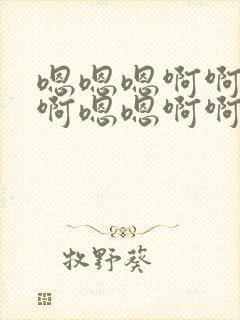 嗯嗯嗯啊啊
啊嗯嗯啊啊
牧野葵